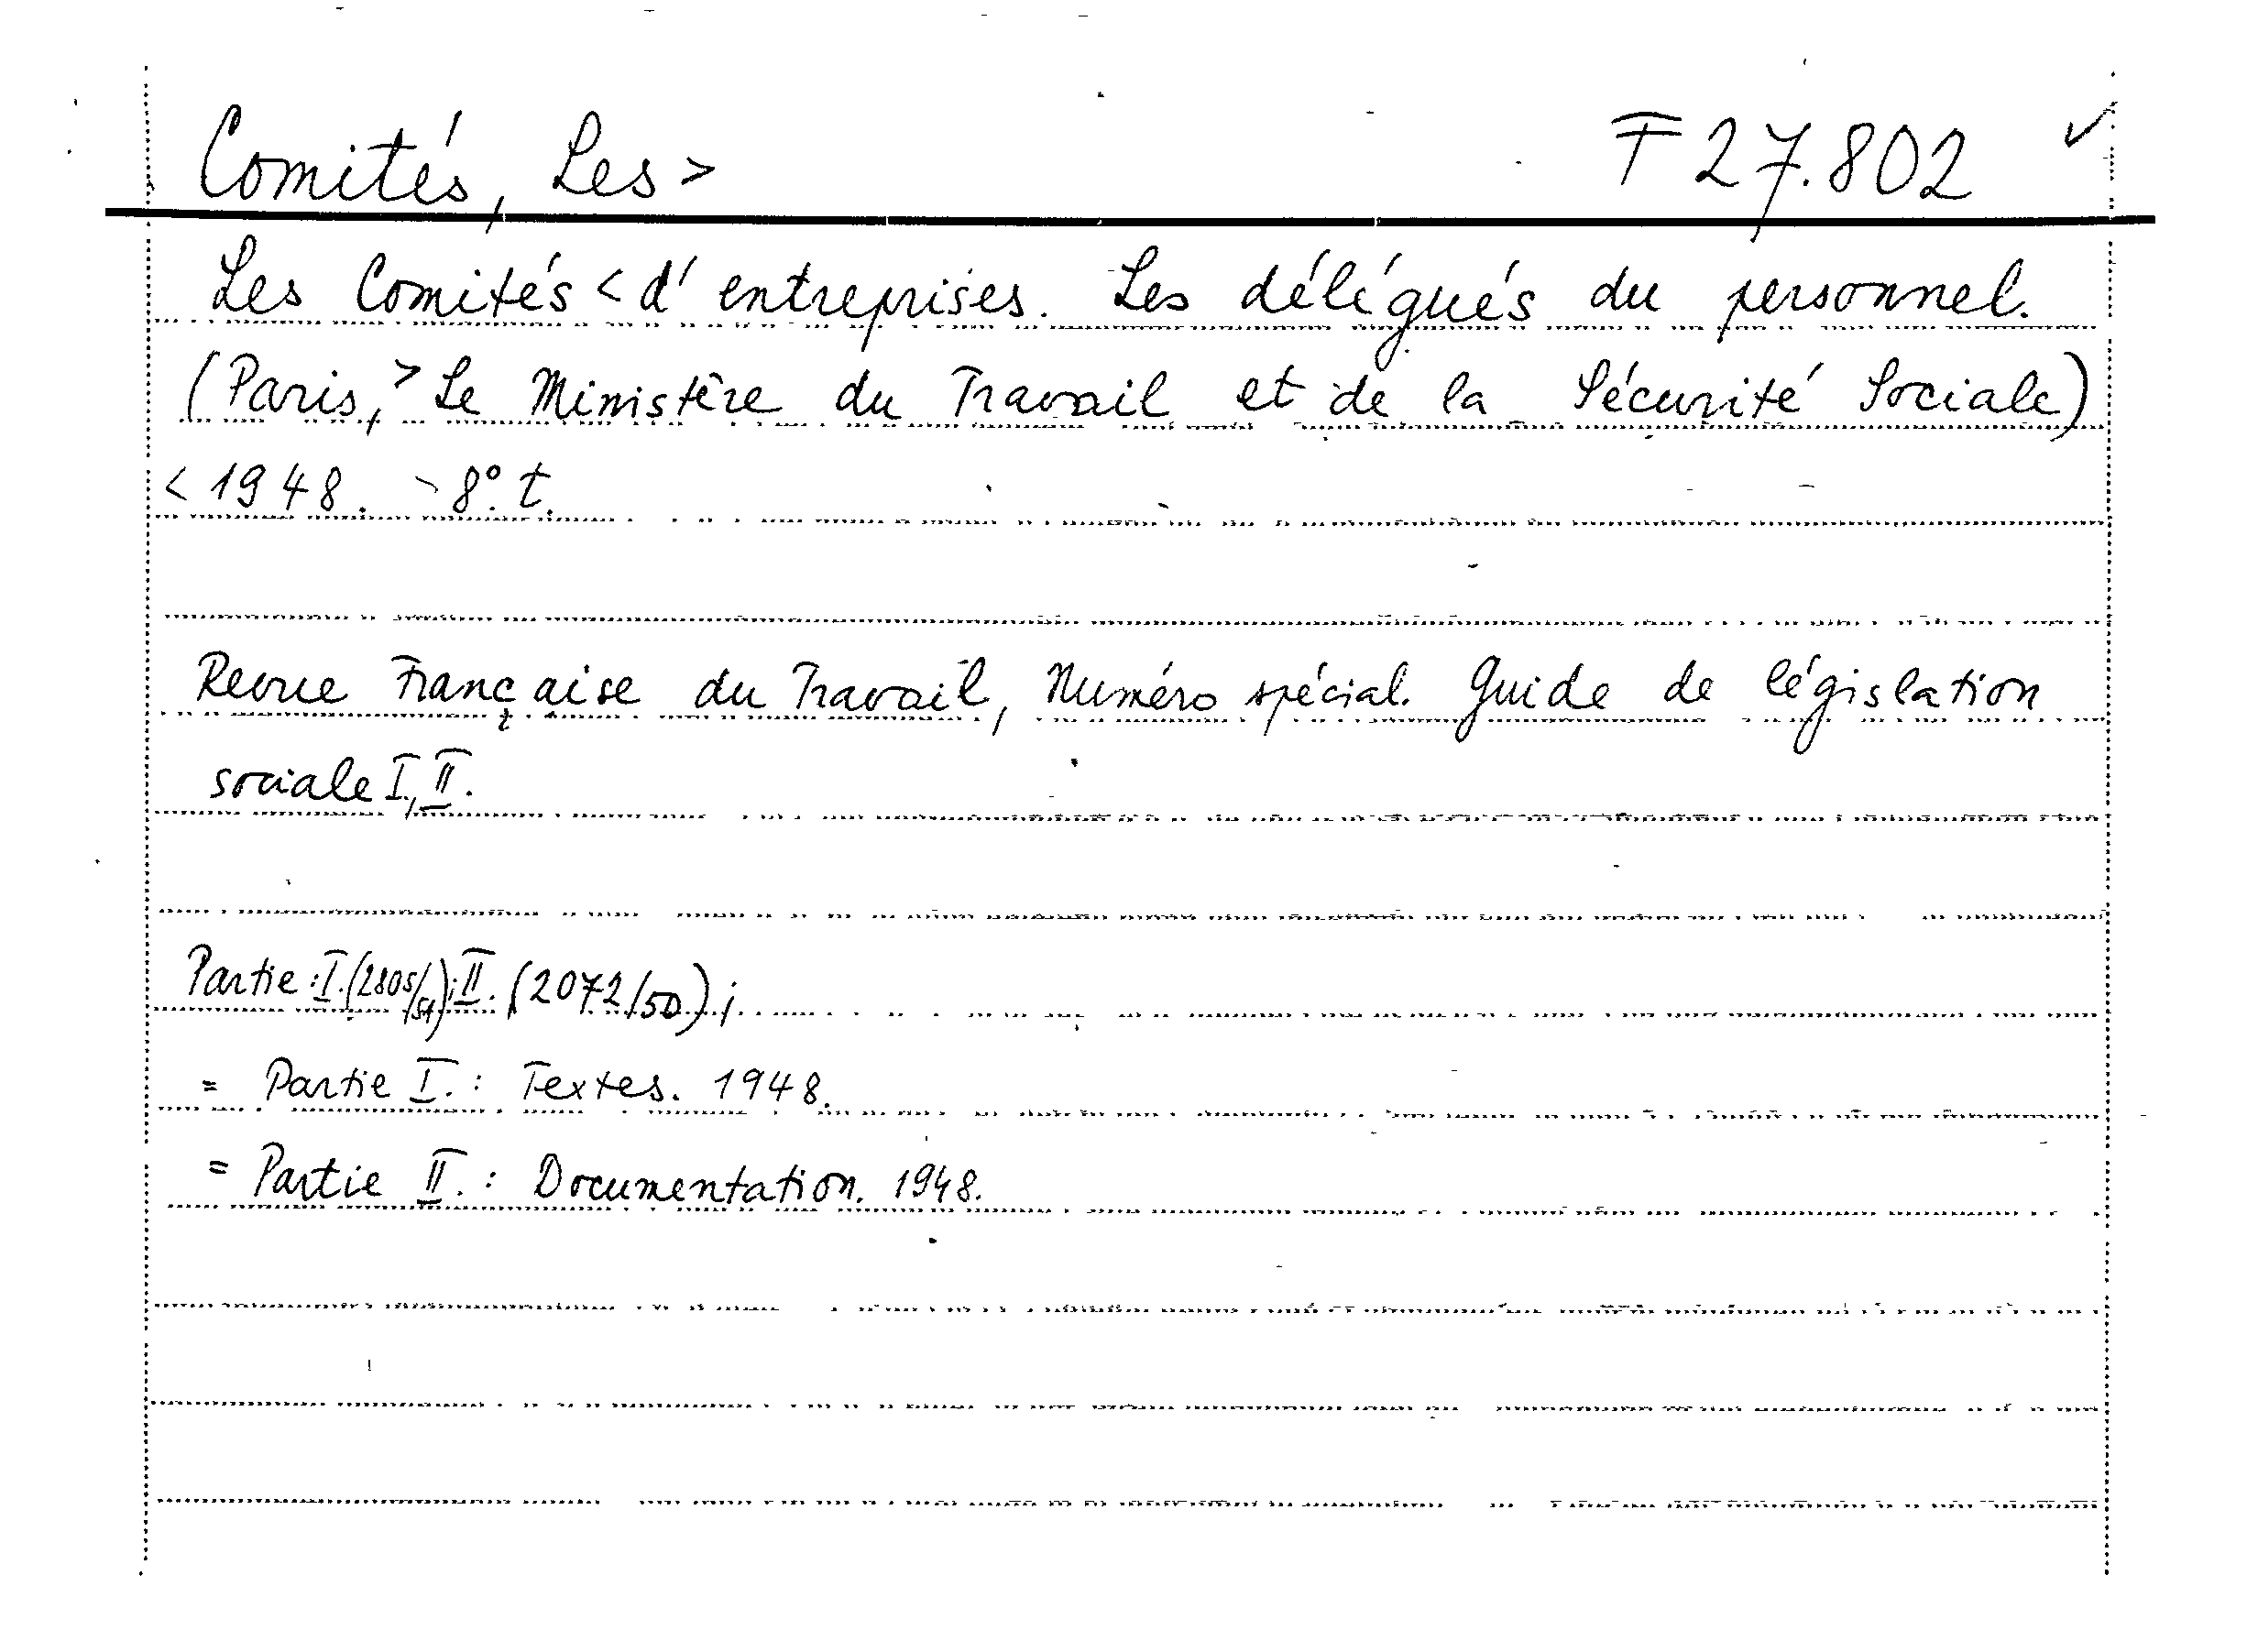 Comités, Les > F 27.802 ✓
Les Comités < d' entreprises. Les délégués du personnel.
(Paris, > Le Ministère du Travail et de la Sécurité Sociale)
< 1948. - 8°. t.
Revue Française du Travail, Numéro spécial. Guide de législation
sociale I, II.
Partie: I. (2805/51); II. (2072/50);
= Partie I. : Textes. 1948.
= Partie II. : Documentation. 1948.